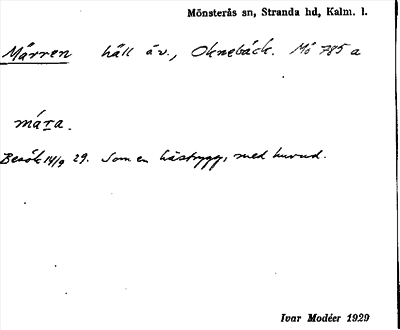 Mönsterås sn, Stranda hd, Kalm. l.
Märren häll äv., Oknebäck. Mö 785 a
måra.
Besök 14/9 29. Som en hästrygg, med huvud.
Ivar Modéer 1929